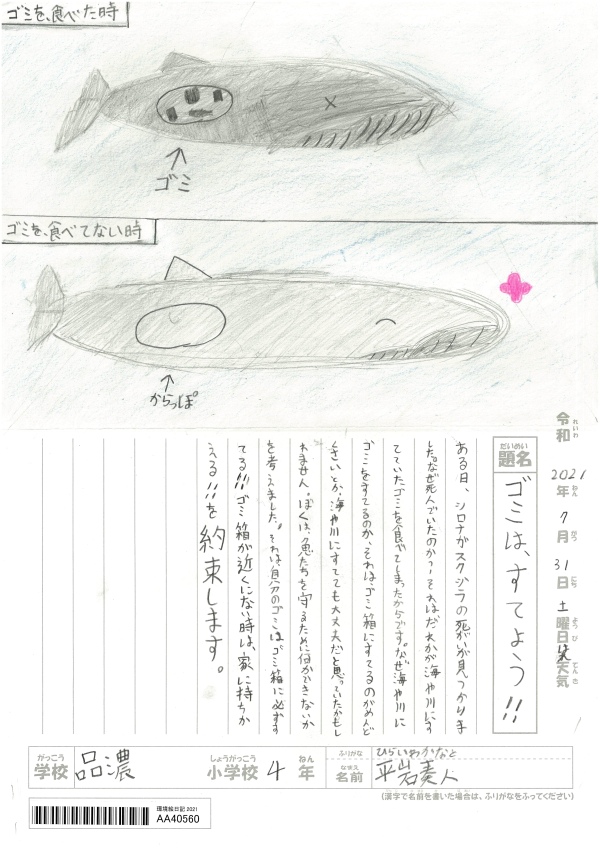 ゴミを、食べた時
ゴミ
ゴミを、食べてない時
からっぽ
令和 2021年 7月 31日 土曜日 天気
れいわ ねん がつ にち ようび てんき
だいめい
題名
ゴミは、すてよう!!
ある日、シロナガスクジラの死がいが見つかりま
した。なぜ死んでいたのか?それはだれかが海や川にす
てていたゴミを食べてしまったからです。なぜ海や川に
ゴミをすてるのか、それはゴミ箱にすてるのがめんど
くさいとか、海や川にすてても大丈夫だと思っていたかもし
れません。ぼくは、魚たちを守るために何かできないか
を考えました。それは自分のゴミはゴミ箱に必ずす
てる!!ゴミ箱が近くにない時は、家に持ちか
える!!を約束します。
がっこう
学校 品濃
しょうがっこう ねん
小学校 4年
ふりがな ひらいわかなと
なまえ
名前 平岩奏人
(漢字で名前を書いた場合は、ふりがなをふってください)
環境絵日記 2021
AA40560